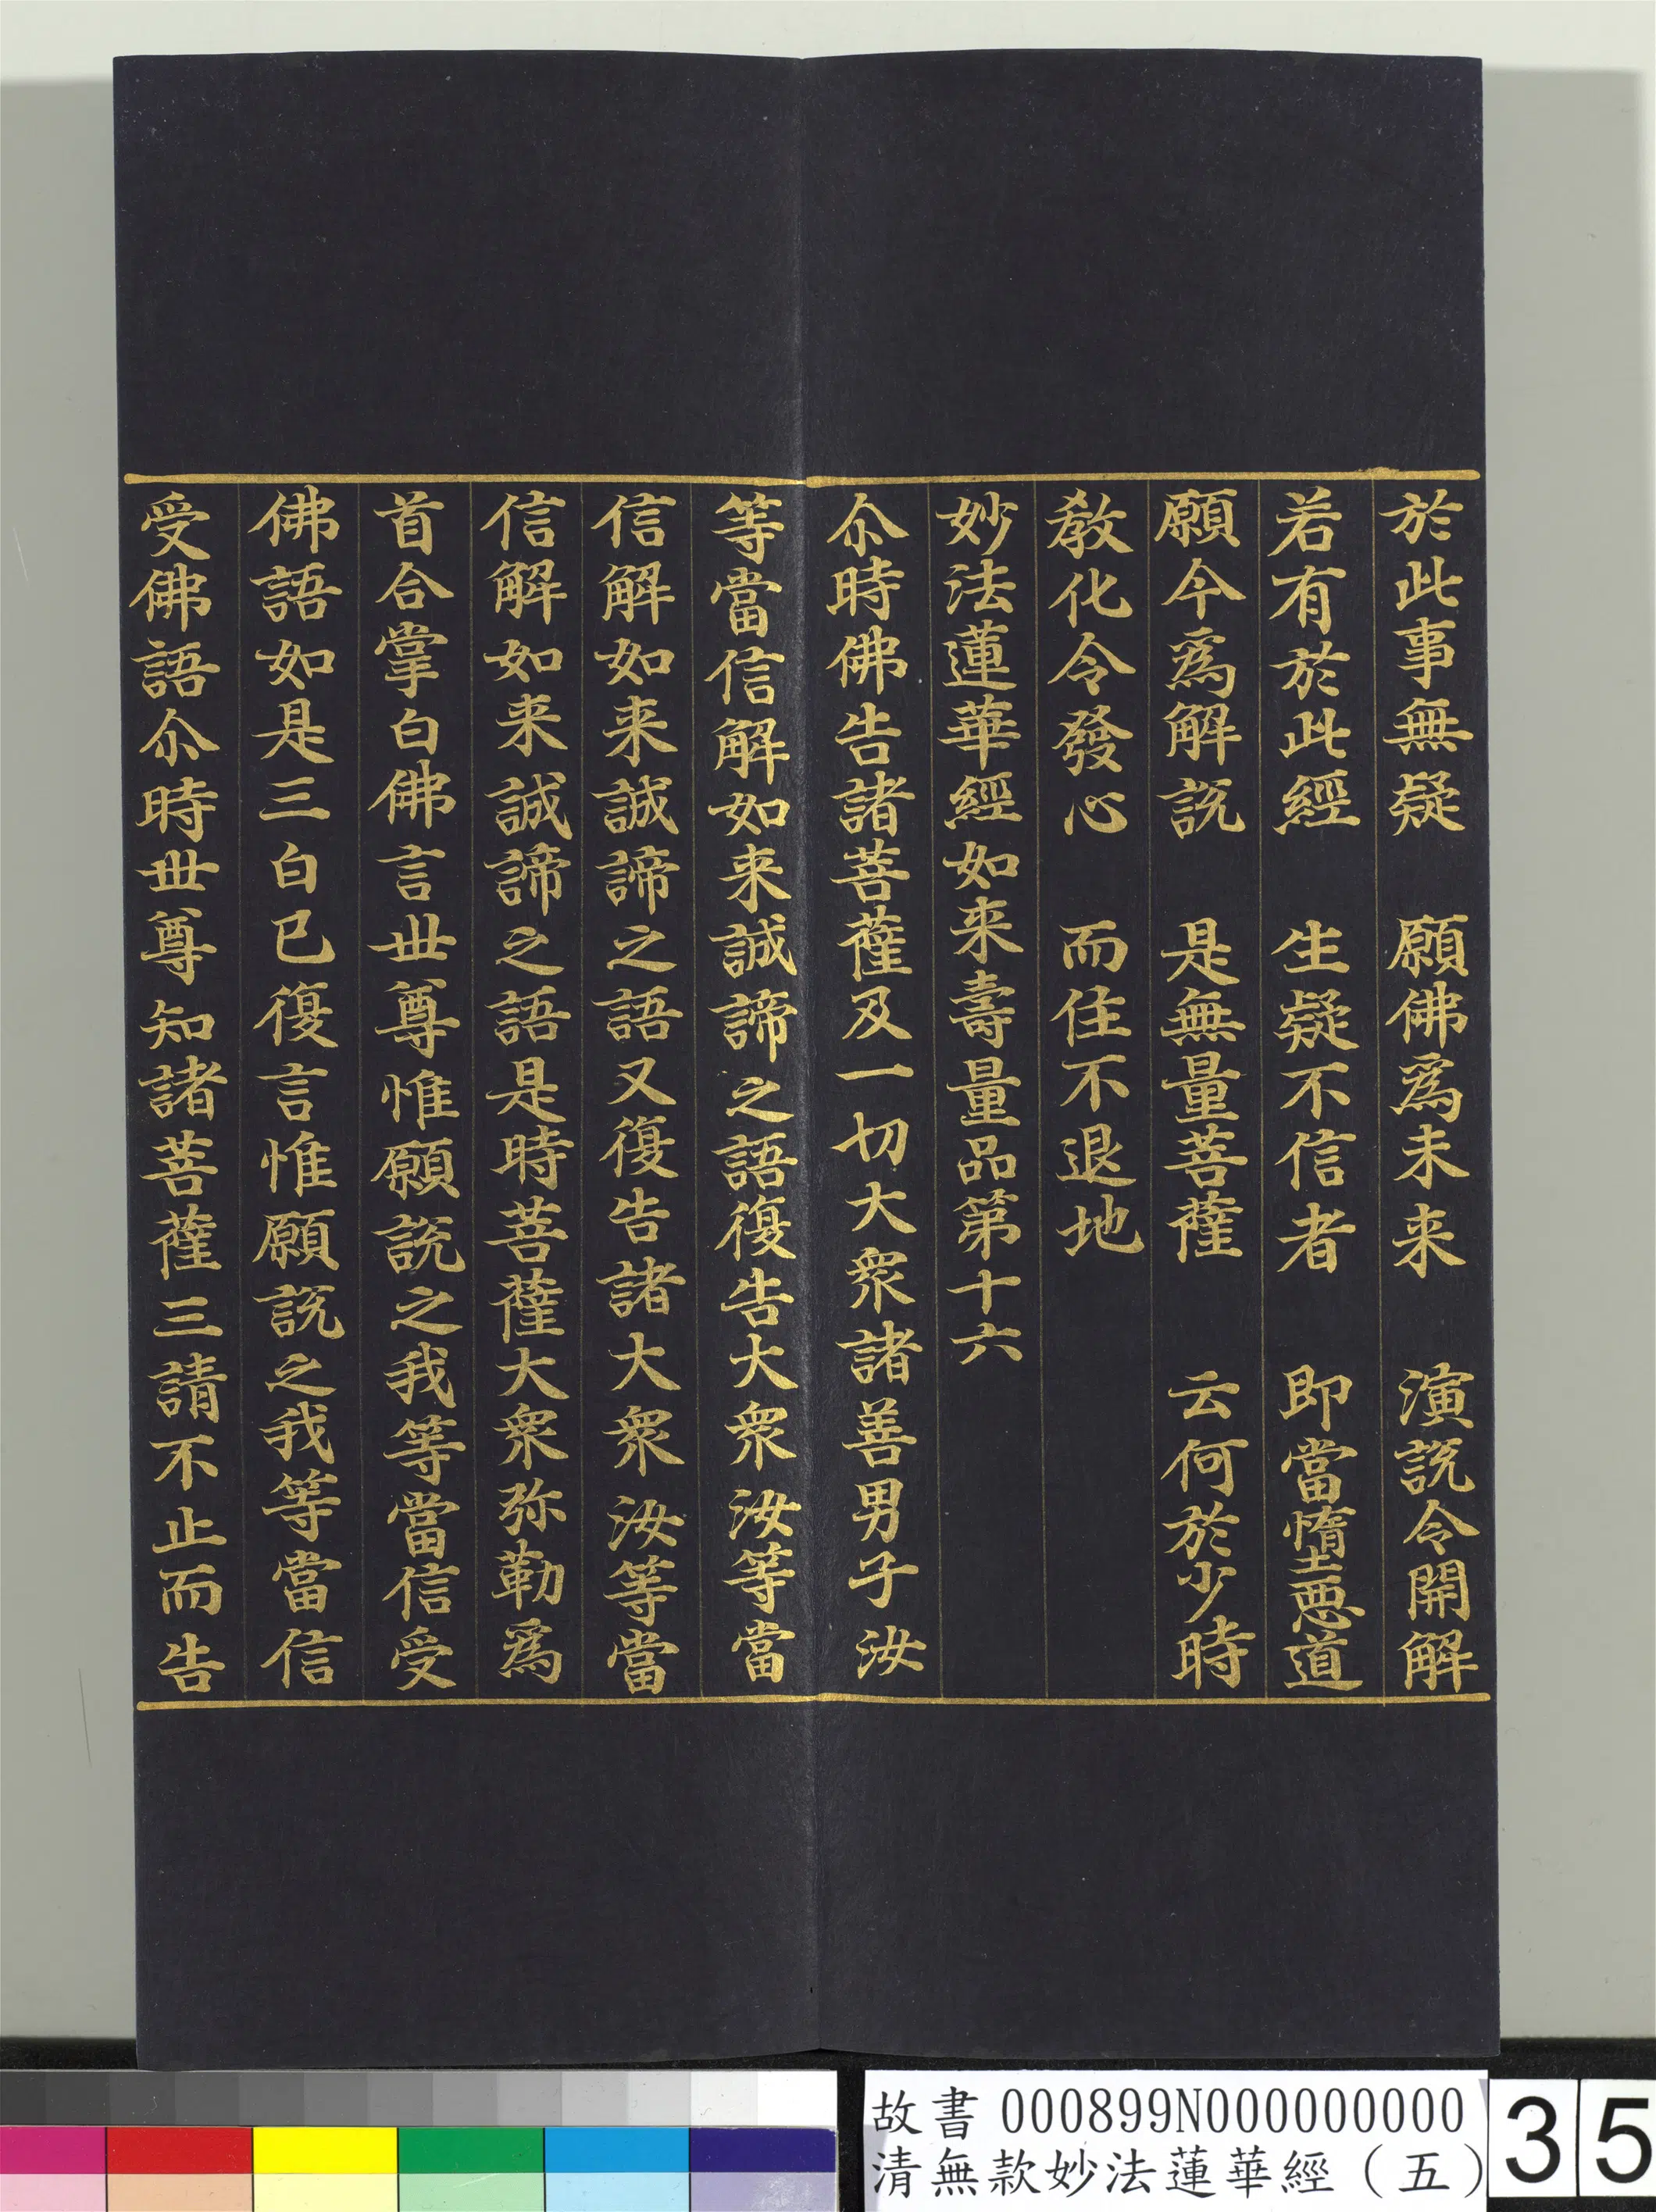 於此事無疑　願佛爲未来　演說令開解
若有於此經　生疑不信者　即當墮惡道
願今爲解說　是無量菩薩　云何於少時
教化令發心　而住不退地
妙法蓮華經如来壽量品第十六
尒時佛告諸菩薩及一切大衆諸善男子汝
等當信解如来誠諦之語復告大衆汝等當
信解如来誠諦之語又復告諸大衆汝等當
信解如来誠諦之語是時菩薩大衆弥勒爲
首合掌白佛言世尊惟願說之我等當信受
佛語如是三白已復言惟願說之我等當信
受佛語尒時世尊知諸菩薩三請不止而告
故書 000899N000000000
清無款妙法蓮華經（五）
35